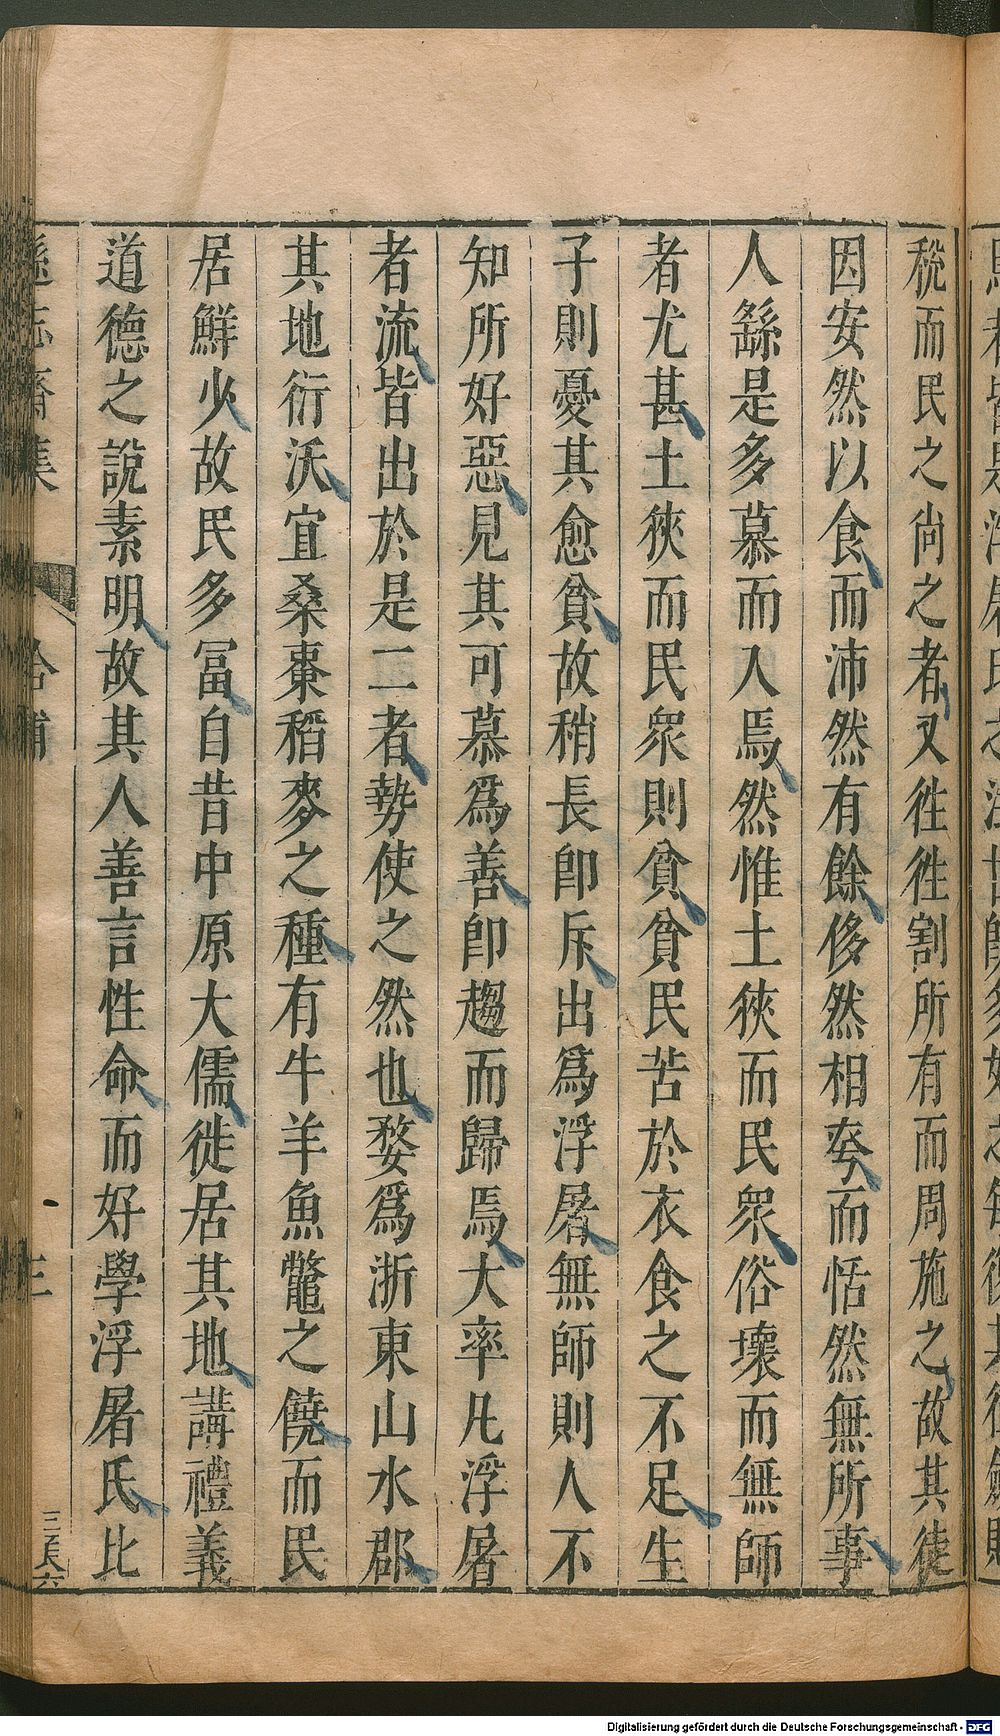 稅而民之尚之者又徃徃割所有而周施之故其徒
因安然以食而沛然有餘侈然相夸而恬然無所事
人繇是多慕而入焉然惟土狹而民衆俗壞而無師
者尤甚土狹而民衆則貧貧民苦於衣食之不足生
子則憂其愈貧故稍長卽斥出爲浮屠無師則人不
知所好惡見其可慕爲善卽趨而歸焉大率凡浮屠
者流皆出於是二者勢使之然也婺爲浙東山水郡
其地衍沃宜桑棗稻麥之種有牛羊魚鼈之饒而民
居鮮少故民多富自昔中原大儒徙居其地講禮義
道德之說素明故其人善言性命而好學浮屠氏比
三
三集六
Digitalisierung gefördert durch die Deutsche Forschungsgemeinschaft - DFG